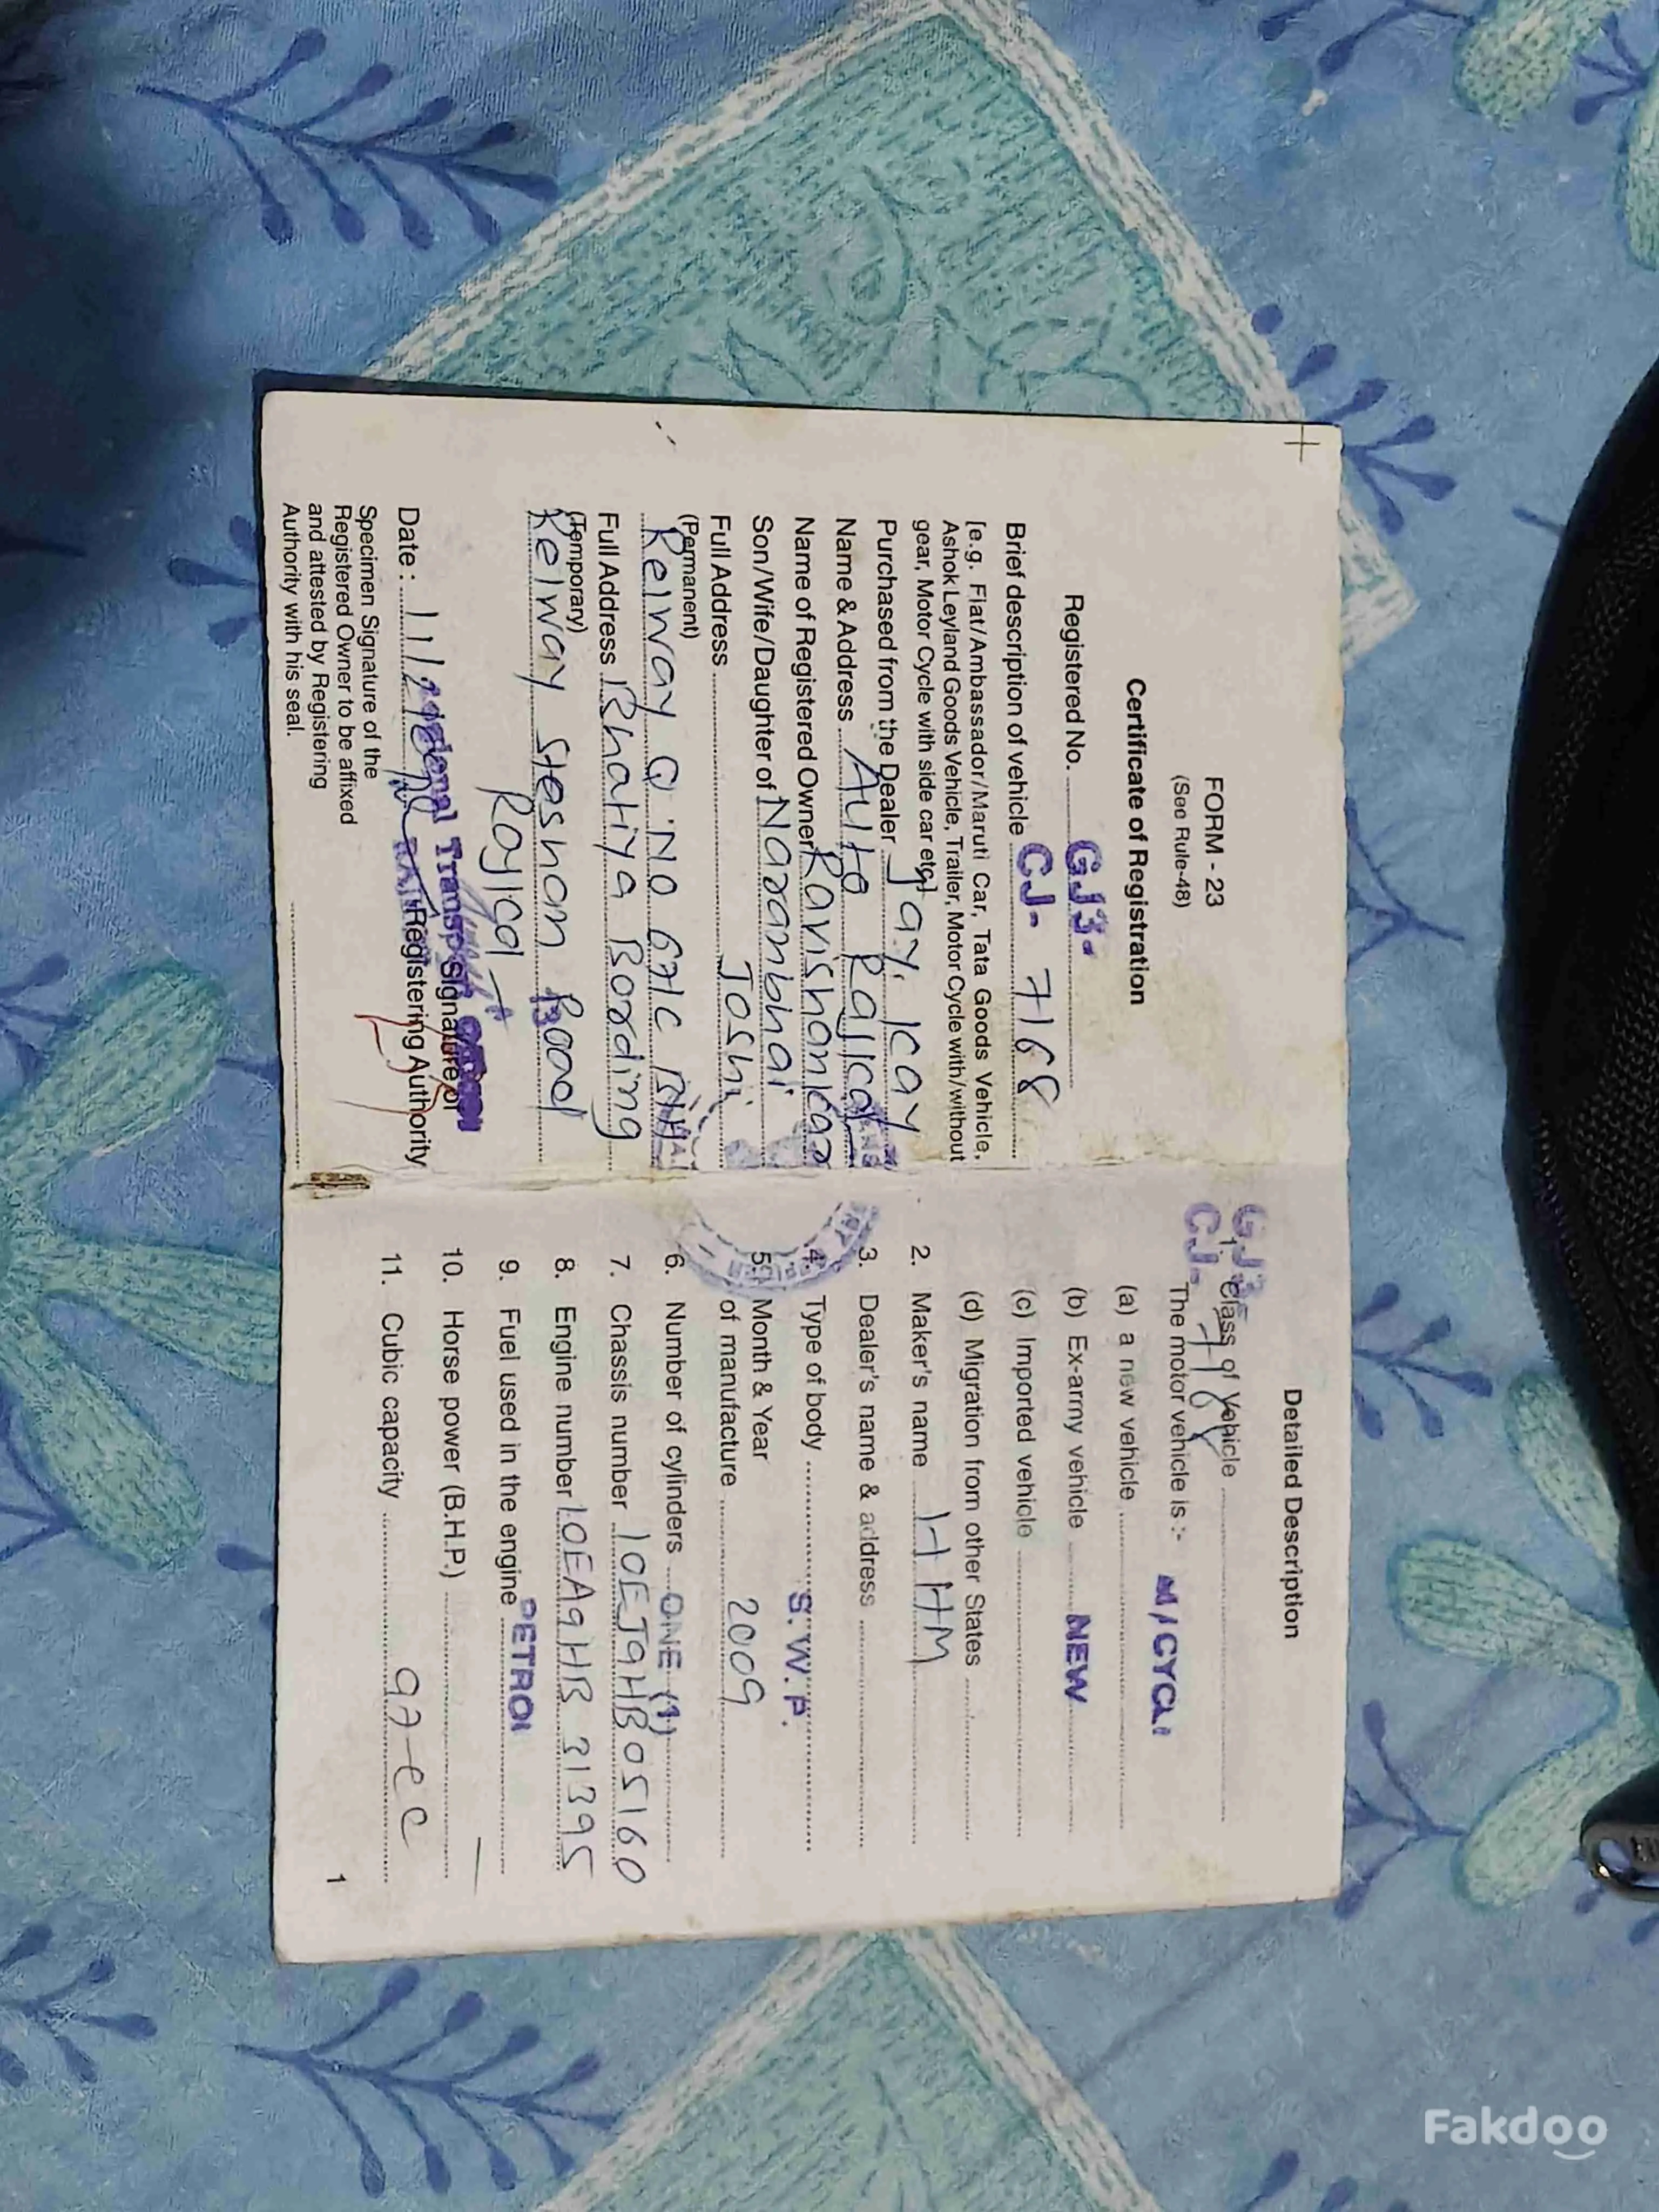 FORM - 23
(See Rule-48)
Certificate of Registration
Registered No. GJ3-
Brief description of vehicle CJ- 7168
[e.g. Fiat/Ambassador/Maruti Car, Tata Goods Vehicle,
Ashok Leyland Goods Vehicle, Trailer, Motor Cycle with/without
gear, Motor Cycle with side car etc]
Purchased from the Dealer Jay. Kay
Name & Address Auto Rajkot
Name of Registered Owner Ravishankar
Son/Wife/Daughter of Naranbhai
Full Address Joshi
(Permanent) Relway Q. No 67/c
Full Address Bhatiya Bording
(Temporary)
Relway Steshan Road
Rajkot
Date : 11/2/
Signature of
Registering Authority
Specimen Signature of the
Registered Owner to be affixed
and attested by Registering
Authority with his seal.
Detailed Description
GJ3-
CJ- 7168
1. Class of Vehicle
The motor vehicle is :- M/CYCL
(a) a new vehicle
(b) Ex-army vehicle NEW
(c) Imported vehicle
(d) Migration from other States
2. Maker's name HHM
3. Dealer's name & address
4. Type of body S.W.P.
5. Month & Year
of manufacture 2009
6. Number of cylinders ONE (1)
7. Chassis number 10EJ9HB05160
8. Engine number 10EA9HB 31395
9. Fuel used in the engine PETROL
10. Horse power (B.H.P.) —
11. Cubic capacity 97-cc
1
Fakdoo